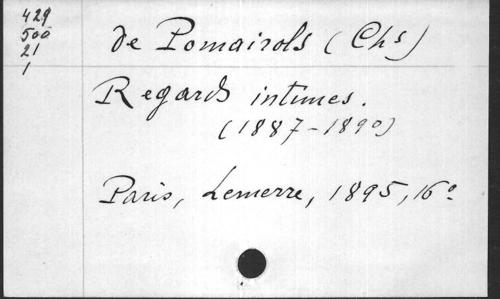 429
500
21
1
de Pomairols (Chs)
Regards intimes.
(1887-1890)
Paris, Lemerre, 1895, 16º.